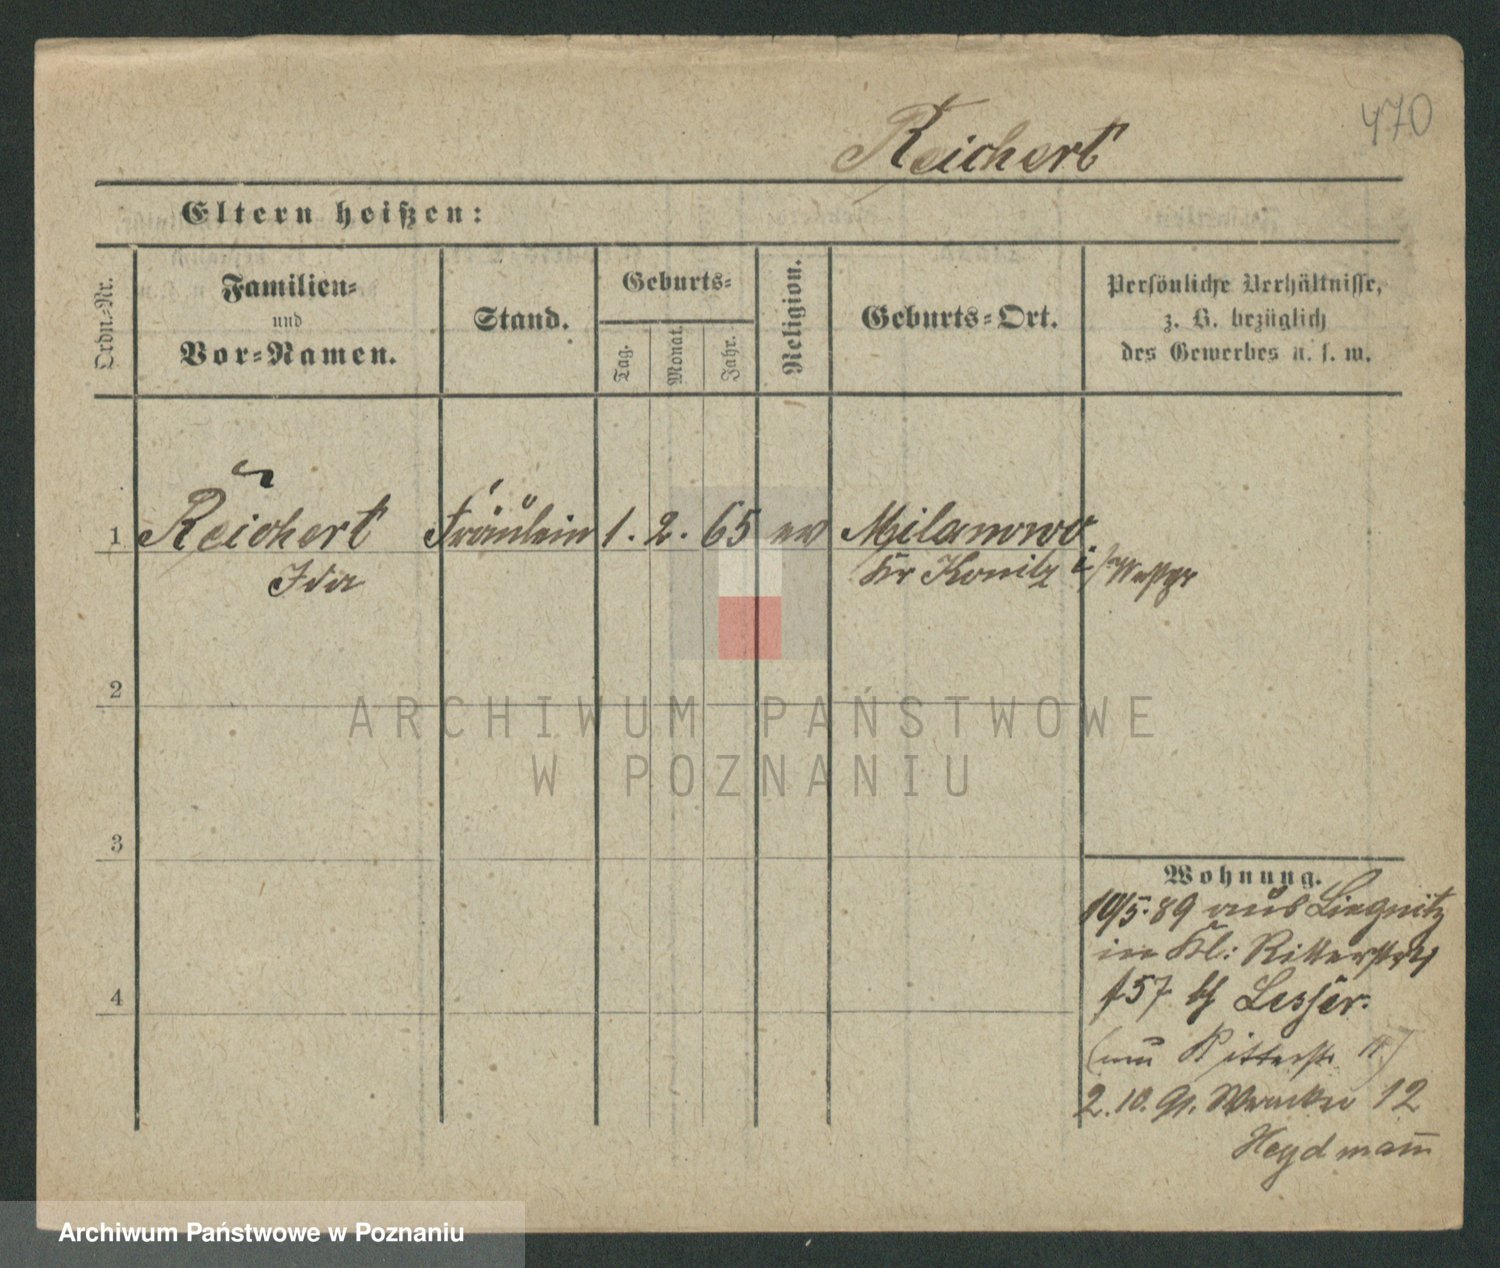 470
Reichert
Eltern heißen:
Ordn.-Nr.
Familien-
und
Vor-Namen.
Stand.
Geburts-
Tag.
Monat.
Jahr.
Religion.
Geburts-Ort.
Persönliche Verhältnisse,
z. B. bezüglich
des Gewerbes u. s. w.
1 Reichert Fräulein 1. 2. 65 ev Milanowo
Ida Kr Konitz i/Westpr
2
ARCHIWUM PAŃSTWOWE
W POZNANIU
3
Wohnung.
10/5.89 aus Liegnitz
in Kl: Ritterstr
bei Lesser.
Ritterstr
2.10. 12
Heydmann
4
Archiwum Państwowe w Poznaniu